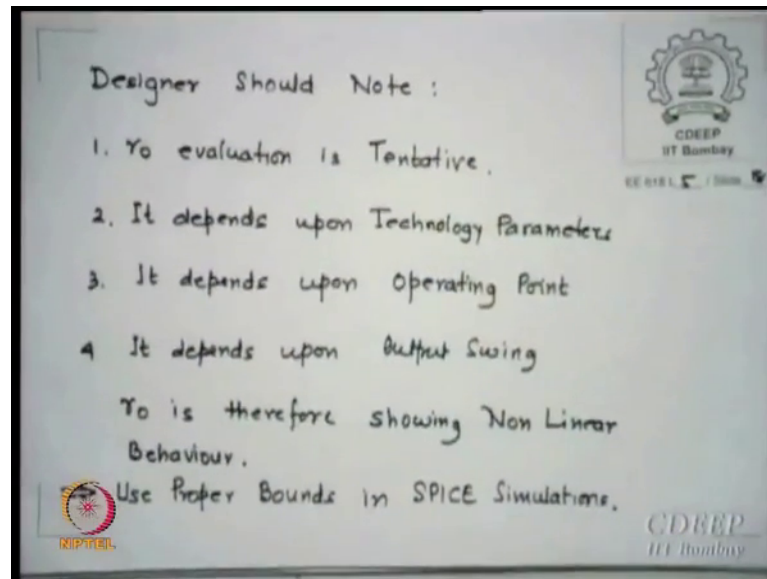 Designer Should Note :
1. ro evaluation is Tentative.
2. It depends upon Technology Parameters
3. It depends upon Operating Point
4 It depends upon Output Swing
ro is therefore showing Non Linear
Behaviour.
⇒ Use Proper Bounds in SPICE Simulations.
CDEEP
IIT Bombay
EE 618 L 5 / Slide
NPTEL
CDEEP
IIT Bombay